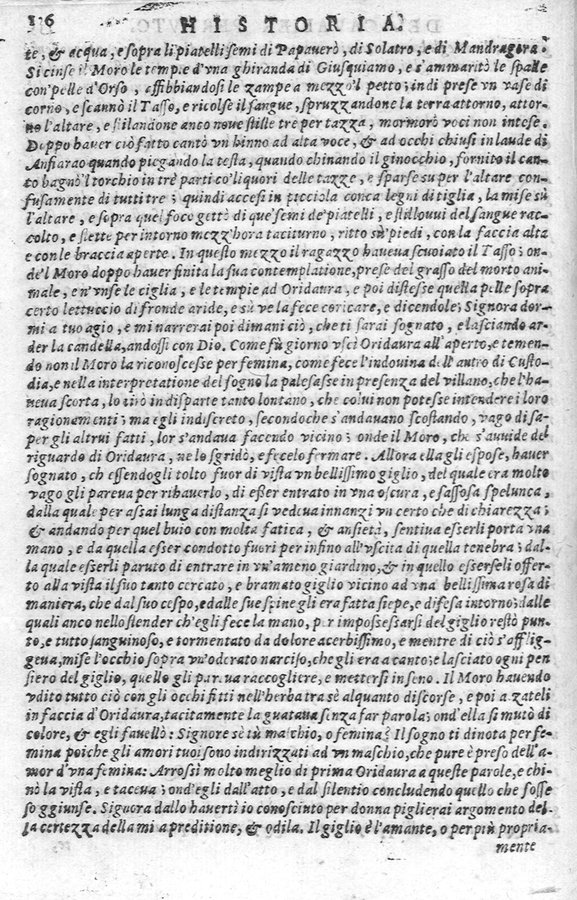 116 HISTORIA
te, & acqua, e sopra li piatelli semi di Papauero, di Solatro, e di Mandragora.
Si cinse il Moro le tempie d'vna ghiranda di Giusquiamo, e s'ammaritò le spalle
con pelle d'Orso, affibbiandosi le zampe a mezzo'l petto; indi prese vn vase di
corno, e scannò il Tasso, e ricolse il sangue, spruzzandone la terra attorno, attor-
no l'altare, e stilandone anco noue stille tre per tazza, mormorò voci non intese.
Doppo hauer ciò fatto cantò vn hinno ad alta voce, & ad occhi chiusi in laude di
Anfiarao quando piegando la testa, quando chinando il ginocchio, fornito il can-
to bagnò l'torchio in trè parti co'liquori delle tazze, e sparse su per l'altare con-
fusamente di tutti tre; quindi accesi in picciola conca legni di tiglia, la mise sù
l'altare, e sopra quel foco gettò di que'semi de'piatelli, e stillouui del sangue rac-
colto, e stette per intorno mezz'hora taciturno, ritto sù piedi, con la faccia alta
e con le braccia aperte. In questo mezzo il ragazzo haueua scuoiato il Tasso; on-
de'l Moro doppo hauer finita la sua contemplatione, prese del grasso del morto ani-
male, e n'vnse le ciglia, e le tempie ad Oridaura, e poi distesse quella pelle sopra
certo lettuccio di fronde aride, e sù ve la fece coricare, e dicendole; Signora dor-
mi a tuo agio, e mi narrerai poi dimani ciò, che ti sarai sognato, e lasciando ar-
der la candella, andossi con Dio. Come fù giorno vscì Oridaura all'aperto, e temen-
do non il Moro la riconoscesse per femina, come fece l'indouina dell'antro di Custo-
dia, e nella interpretatione del sogno la palesasse in presenza del villano, che l'ha-
ueua scorta, lo tirò in disparte tanto lontano, che colui non potesse intendere i loro
ragionamenti; ma egli indiscreto, secondoche s'andauano scostando, vago di sa-
per gli altrui fatti, lor s'andaua facendo vicino; onde il Moro, che s'auuide del
riguardo di Oridaura, ne lo sgridò, e fecelo fermare. Allora ella gli espose, hauer
sognato, ch essendogli tolto fuor di vista vn bellissimo giglio, del quale era molto
vago gli pareua per rihauerlo, di eßer entrato in vna oscura, e sassosa spelunca,
dalla quale per assai lunga distanza si vedeua innanzi vn certo che di chiarezza;
& andando per quel buio con molta fatica, & ansietà, sentiua esserli porta vna
mano, e da quella esser condotto fuori per infino all'vscita di quella tenebra; dal-
la quale esserli paruto di entrare in vn'ameno giardino, & in quello esserseli offer-
to alla vista il suo tanto cercato, e bramato giglio vicino ad vna bellissima rosa di
maniera, che dal suo cespo, e dalle sue spine gli era fatta siepe, e difesa intorno; dalle
quali anco nello stender ch'egli fece la mano, per impossessarsi del giglio restò pun-
to, e tutto sanguinoso, e tormentato da dolore acerbissimo, e mentre di ciò s'afflig-
geua, mise l'occhio sopra vn'odorato narciso, che gli era a canto; e lasciato ogni pen
siero del giglio, quello gli pareua raccogliere, e mettersi in seno. Il Moro hauendo
vdito tutto ciò con gli occhi fitti nell'herba tra sè alquanto discorse, e poi alzateli
in faccia d'Oridaura, tacitamente la guataua senza far parola; ond'ella si mutò di
colore, & egli fauellò: Signore sè tù maschio, o femina? Il sogno ti dinota per fe-
mina poiche gli amori tuoi sono indirizzati ad vn maschio, che pure è preso dell'a-
mor d'vna femina: Arrossì molto meglio di prima Oridaura a queste parole, e chi-
nò la vista, e taceua; ond'egli dall'atto, e dal silentio concludendo quello che fosse
soggiunse. Signora dallo hauerti io conosciuto per donna piglierai argomento del-
la certezza della mia preditione, & odila. Il giglio è l'amante, o per più propria-
mente